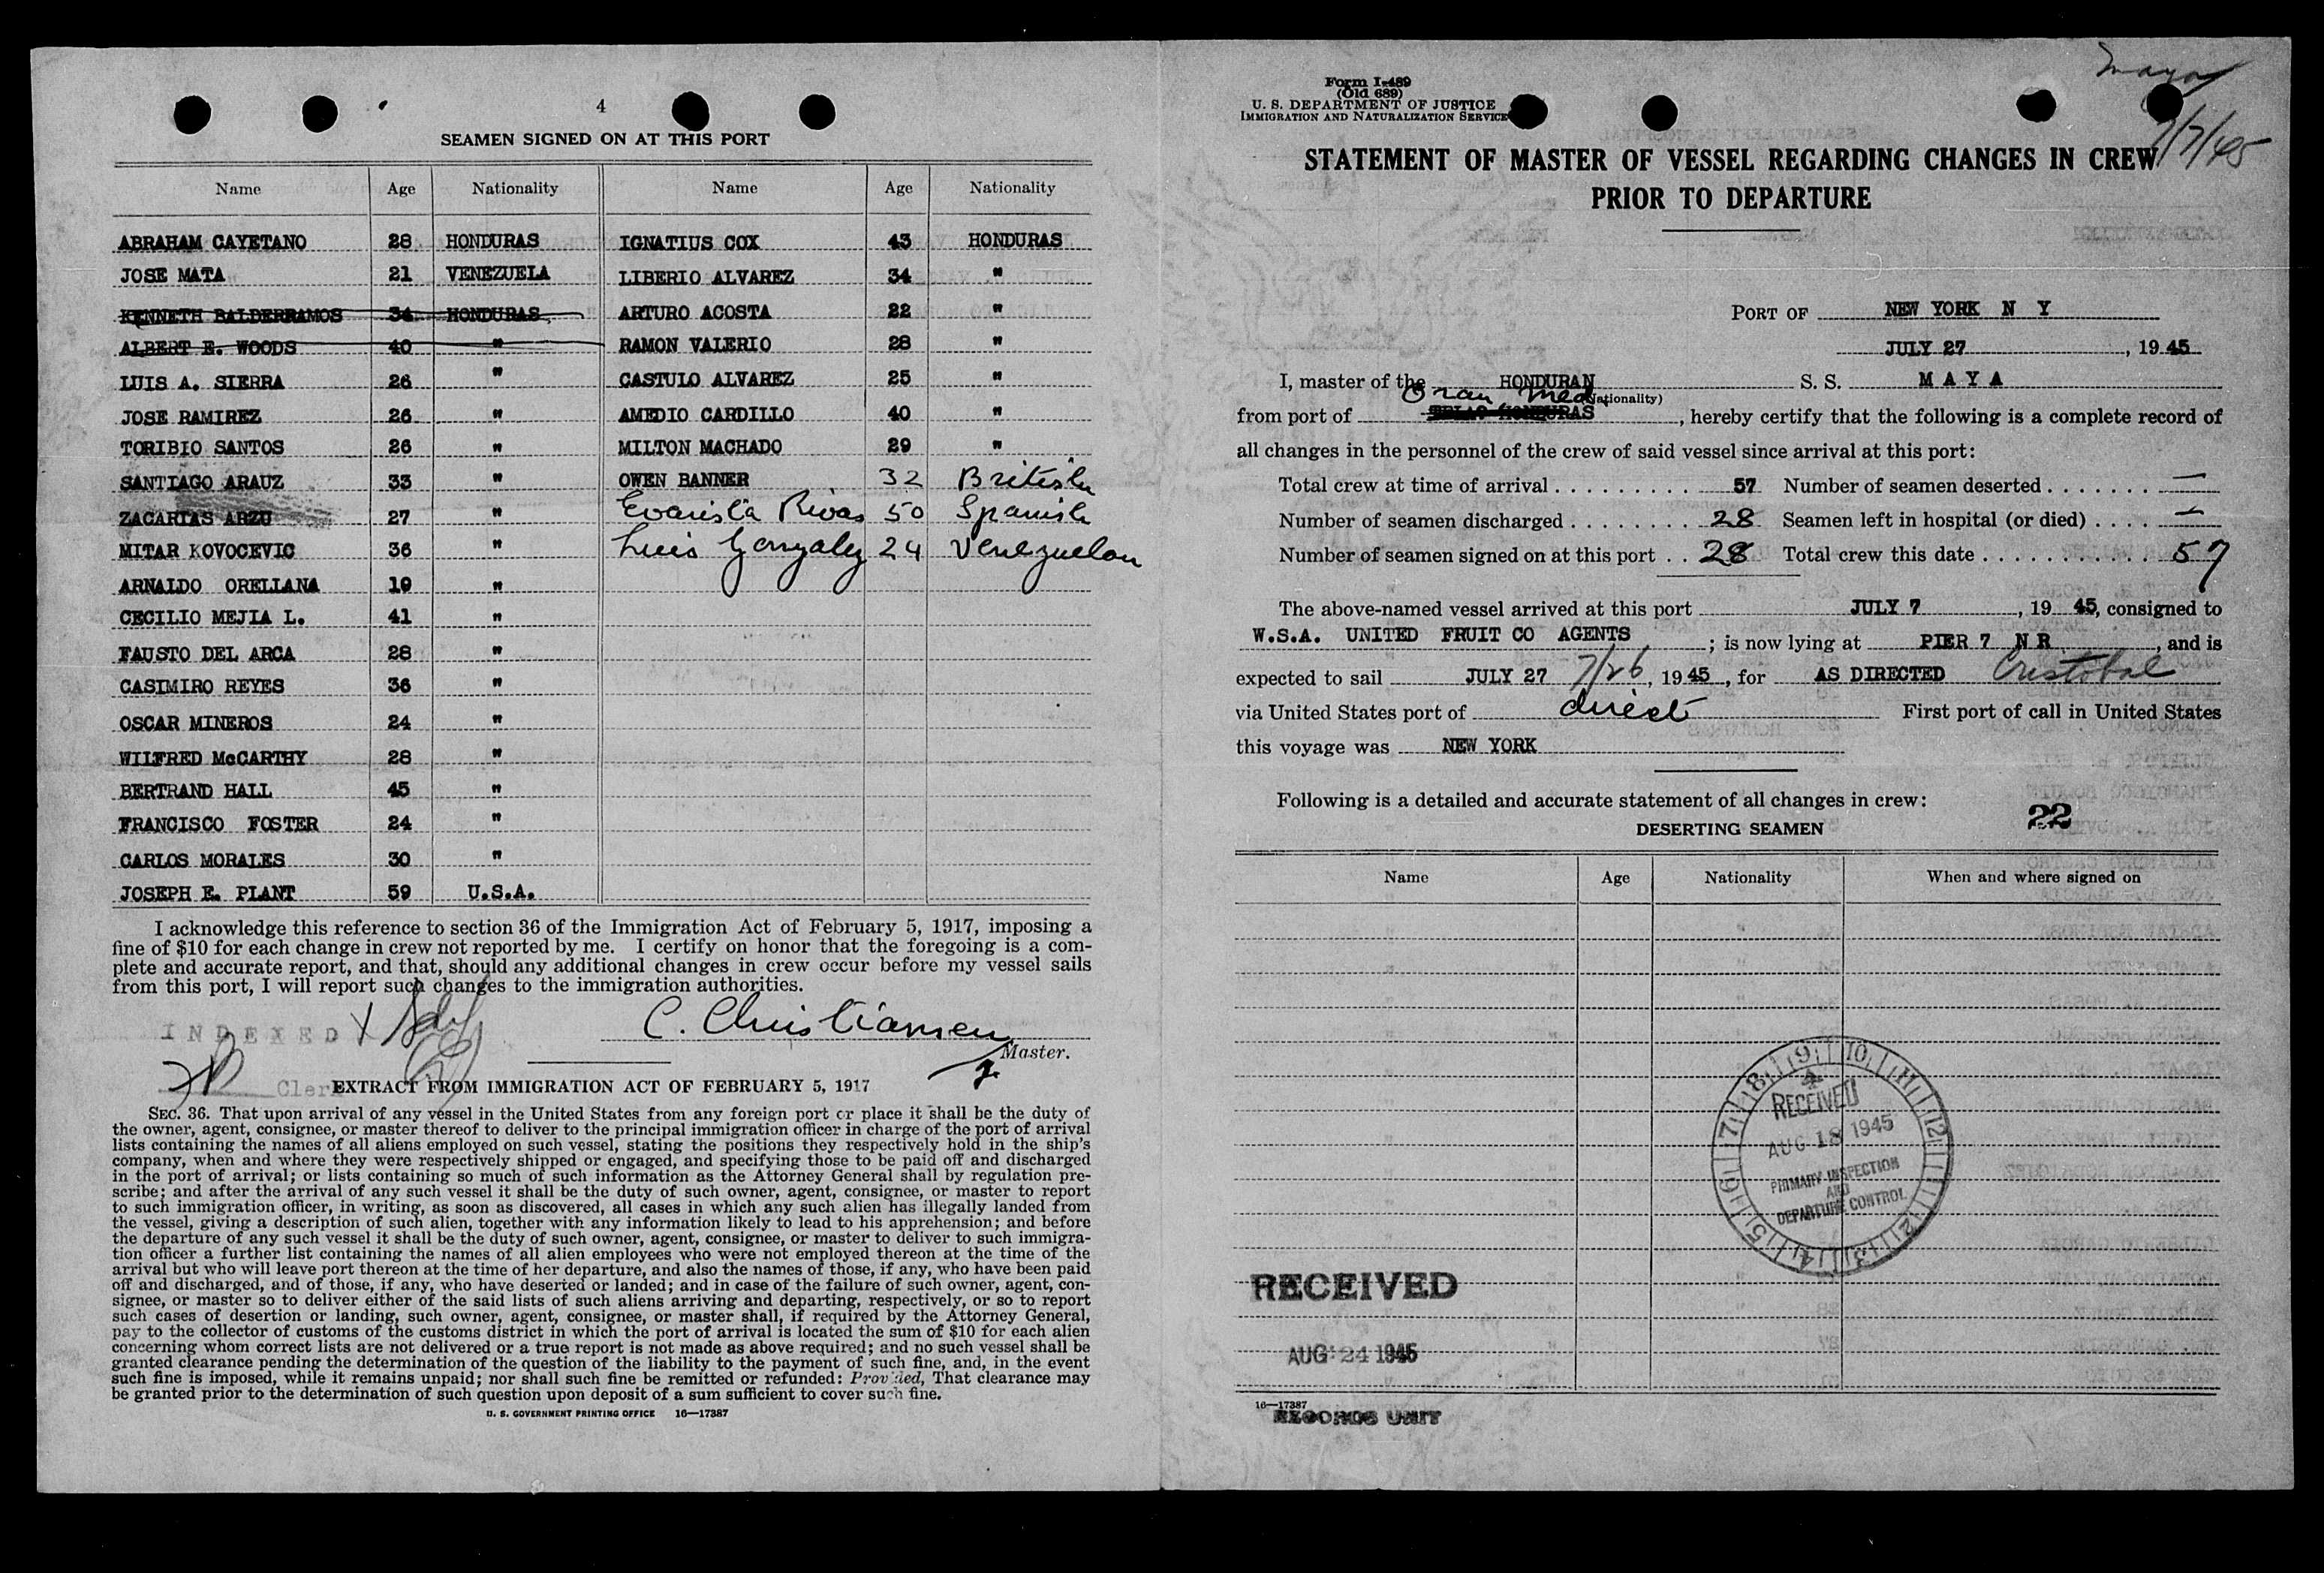 4
SEAMEN SIGNED ON AT THIS PORT
Name Age Nationality Name Age Nationality
ABRAHAM CAYETANO 28 HONDURAS IGNATIUS COX 43 HONDURAS
JOSE MATA 21 VENEZUELA LIBERIO ALVAREZ 34 "
KENNETH BALDERRAMOS 34 HONDURAS ARTURO ACOSTA 22 "
ALBERT E. WOODS 40 " RAMON VALERIO 28 "
LUIS A. SIERRA 26 " CASTULO ALVAREZ 25 "
JOSE RAMIREZ 26 " AMEDIO CARDILLO 40 "
TORIBIO SANTOS 26 " MILTON MACHADO 29 "
SANTIAGO ARAUZ 33 " OWEN BANNER 32 British
ZACARIAS ARZU 27 " Evarista Rivas 50 Spanish
MITAR KOVOCEVIC 36 " Luis Gonzalez 24 Venezuelan
ARNALDO ORELLANA 19 "
CECILIO MEJIA L. 41 "
FAUSTO DEL ARCA 28 "
CASIMIRO REYES 36 "
OSCAR MINEROS 24 "
WILFRED McCARTHY 28 "
BERTRAND HALL 45 "
FRANCISCO FOSTER 24 "
CARLOS MORALES 30 "
JOSEPH E. PLANT 59 U.S.A.
I acknowledge this reference to section 36 of the Immigration Act of February 5, 1917, imposing a
fine of $10 for each change in crew not reported by me. I certify on honor that the foregoing is a com-
plete and accurate report, and that, should any additional changes in crew occur before my vessel sails
from this port, I will report such changes to the immigration authorities.
INDEXED
C. Christiansen
Master.
Clerk
EXTRACT FROM IMMIGRATION ACT OF FEBRUARY 5, 1917
SEC. 36. That upon arrival of any vessel in the United States from any foreign port or place it shall be the duty of
the owner, agent, consignee, or master thereof to deliver to the principal immigration officer in charge of the port of arrival
lists containing the names of all aliens employed on such vessel, stating the positions they respectively hold in the ship's
company, when and where they were respectively shipped or engaged, and specifying those to be paid off and discharged
in the port of arrival; or lists containing so much of such information as the Attorney General shall by regulation pre-
scribe; and after the arrival of any such vessel it shall be the duty of such owner, agent, consignee, or master to report
to such immigration officer, in writing, as soon as discovered, all cases in which any such alien has illegally landed from
the vessel, giving a description of such alien, together with any information likely to lead to his apprehension; and before
the departure of any such vessel it shall be the duty of such owner, agent, consignee, or master to deliver to such immigra-
tion officer a further list containing the names of all alien employees who were not employed thereon at the time of the
arrival but who will leave port thereon at the time of her departure, and also the names of those, if any, who have been paid
off and discharged, and of those, if any, who have deserted or landed; and in case of the failure of such owner, agent, con-
signee, or master so to deliver either of the said lists of such aliens arriving and departing, respectively, or so to report
such cases of desertion or landing, such owner, agent, consignee, or master shall, if required by the Attorney General,
pay to the collector of customs of the customs district in which the port of arrival is located the sum of $10 for each alien
concerning whom correct lists are not delivered or a true report is not made as above required; and no such vessel shall be
granted clearance pending the determination of the question of the liability to the payment of such fine, and, in the event
such fine is imposed, while it remains unpaid; nor shall such fine be remitted or refunded: Provided, That clearance may
be granted prior to the determination of such question upon deposit of a sum sufficient to cover such fine.
U. S. GOVERNMENT PRINTING OFFICE 16—17387
Maya
7/7/45
Form I-489
(Old 689)
U. S. DEPARTMENT OF JUSTICE
IMMIGRATION AND NATURALIZATION SERVICE
STATEMENT OF MASTER OF VESSEL REGARDING CHANGES IN CREW
PRIOR TO DEPARTURE
PORT OF NEW YORK N Y
JULY 27, 1945
I, master of the HONDURAN S. S. MAYA
(Nationality)
Oran Med
from port of TELA HONDURAS, hereby certify that the following is a complete record of
all changes in the personnel of the crew of said vessel since arrival at this port:
Total crew at time of arrival 57 Number of seamen deserted —
Number of seamen discharged 28 Seamen left in hospital (or died) —
Number of seamen signed on at this port 28 Total crew this date 57
The above-named vessel arrived at this port JULY 7, 1945, consigned to
W.S.A. UNITED FRUIT CO AGENTS; is now lying at PIER 7 N R, and is
expected to sail JULY 27 7/26, 1945, for AS DIRECTED Cristobal
via United States port of direct First port of call in United States
this voyage was NEW YORK
Following is a detailed and accurate statement of all changes in crew:
22
DESERTING SEAMEN
Name Age Nationality When and where signed on
RECEIVED
AUG 18 1945
PRIMARY INSPECTION
AND
DEPARTURE CONTROL
RECEIVED
AUG 24 1945
16—17387
RECORDS UNIT